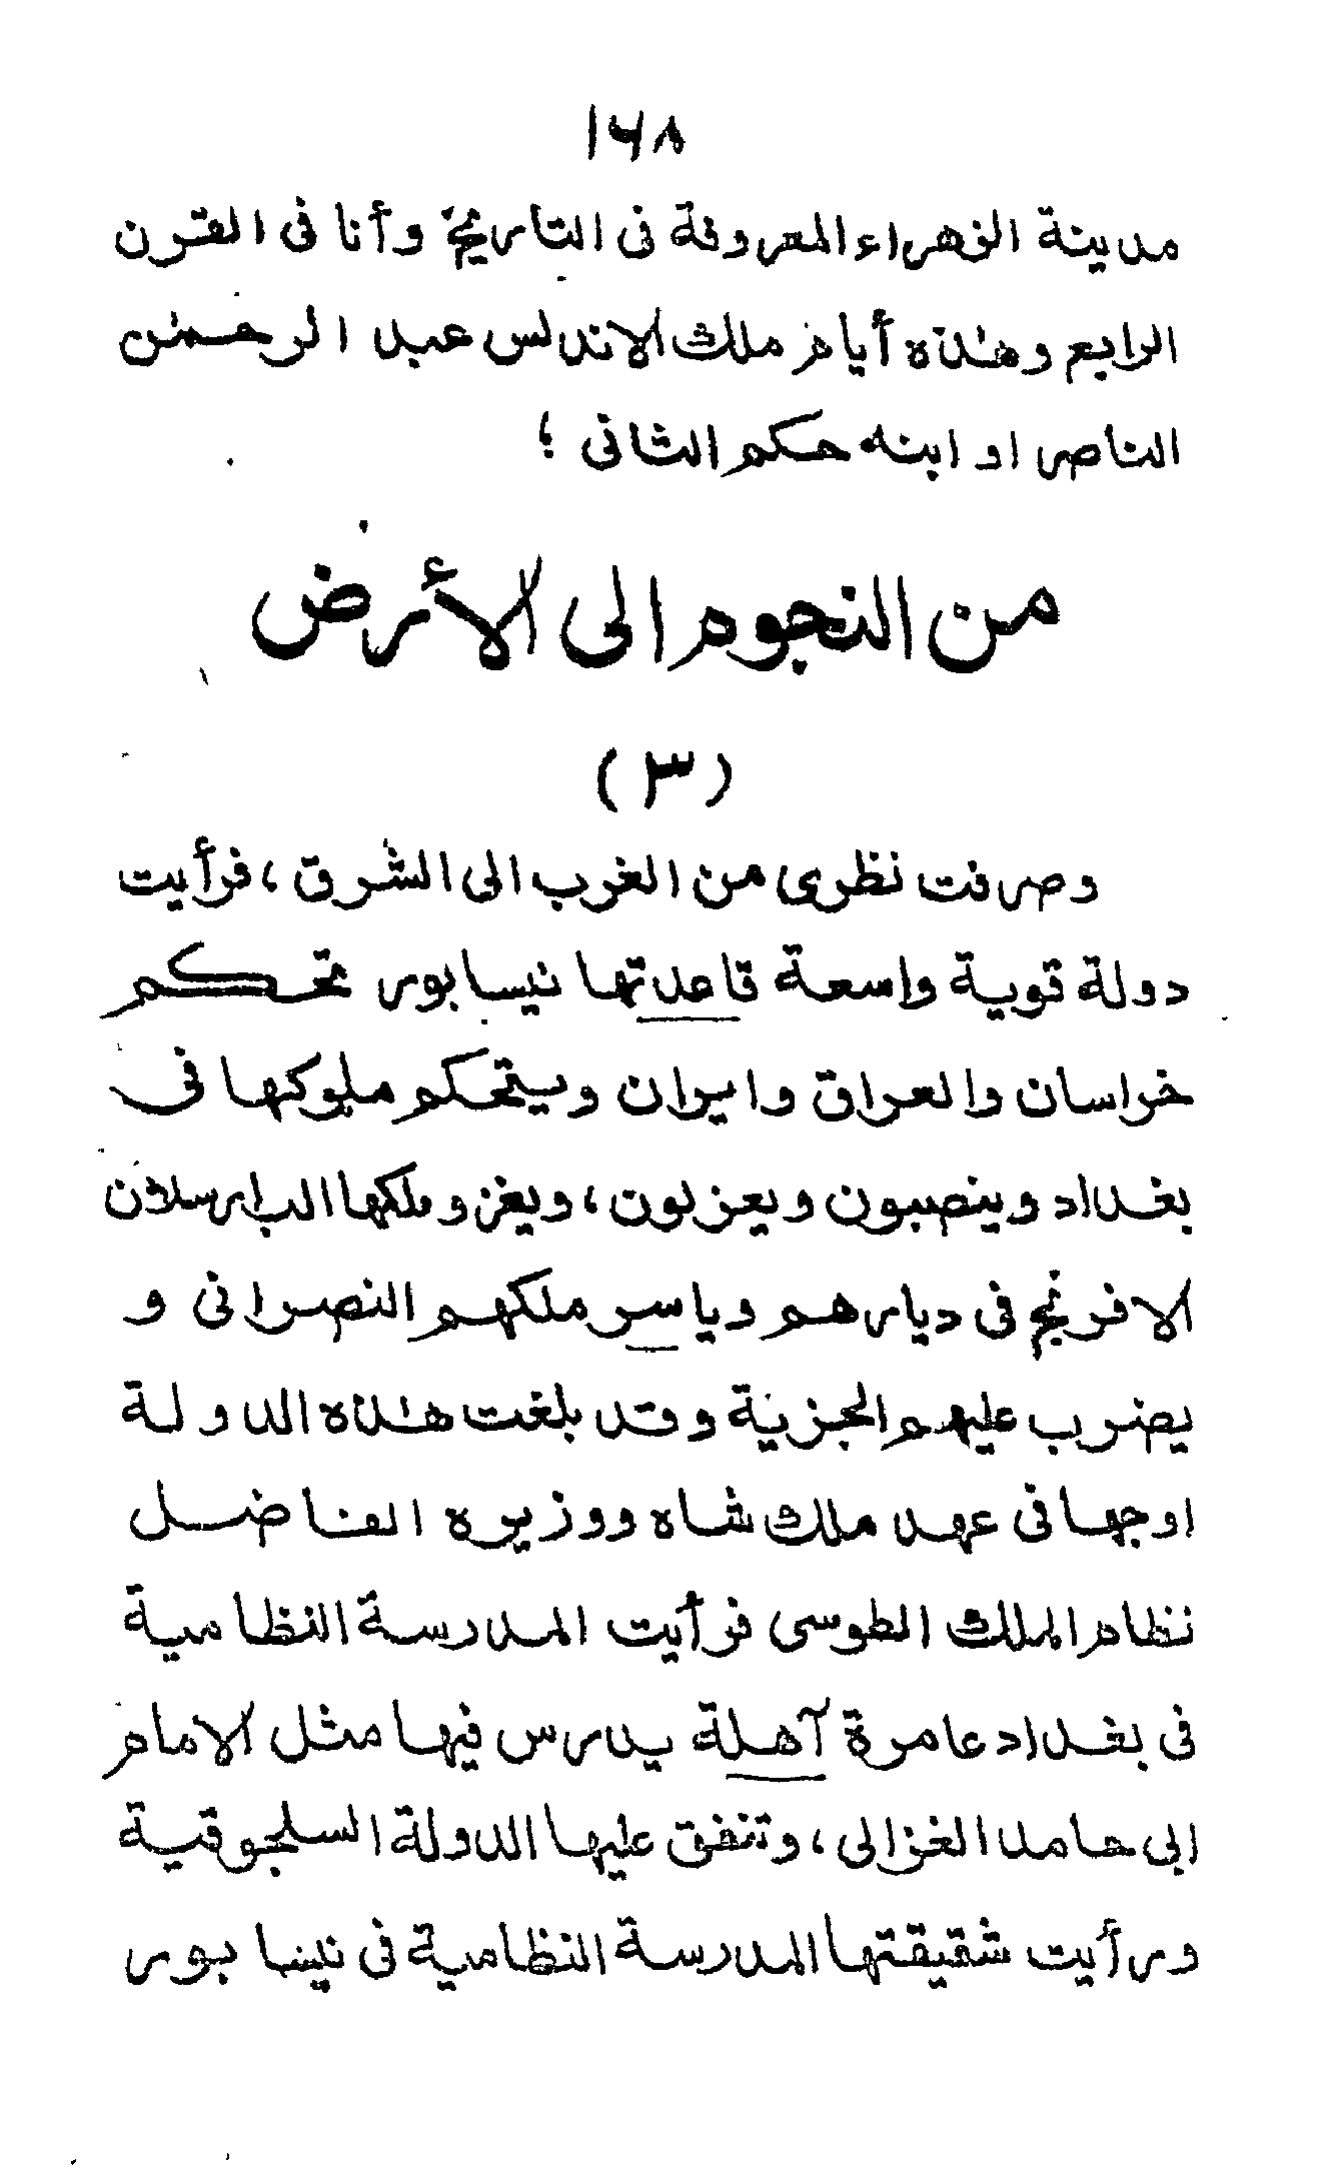 ١٦٨
مدينة الزهراء المعروفة فى التاريخ وأنا فى القرن
الرابع وهٰذه أيام ملك الاندلس عبد الرحمٰن
الناصر او ابنه حكم الثانى ؛
من النجوم الى الأرض
( ٣ )
وصرفت نظرى من الغرب الى الشرق ، فرأيت
دولة قوية واسعة قاعدتها نيسابور تحكم
خراسان والعراق وايران ويتحكم ملوكها فى
بغداد وينصبون ويعزلون ، ويغزو ملكها الب ارسلان
الافرنج فى ديارهم وياسر ملكهم النصرانى و
يضرب عليهم الجزية وقد بلغت هٰذه الدولة
اوجها فى عهد ملك شاه ووزيره الفاضل
نظام الملك الطوسى فرأيت المدرسة النظامية
فى بغداد عامرة آهلة يدرس فيها مثل الامام
ابى حامد الغزالى ، وتنفق عليها الدولة السلجوقية
ورأيت شقيقتها المدرسة النظامية فى نيسابور